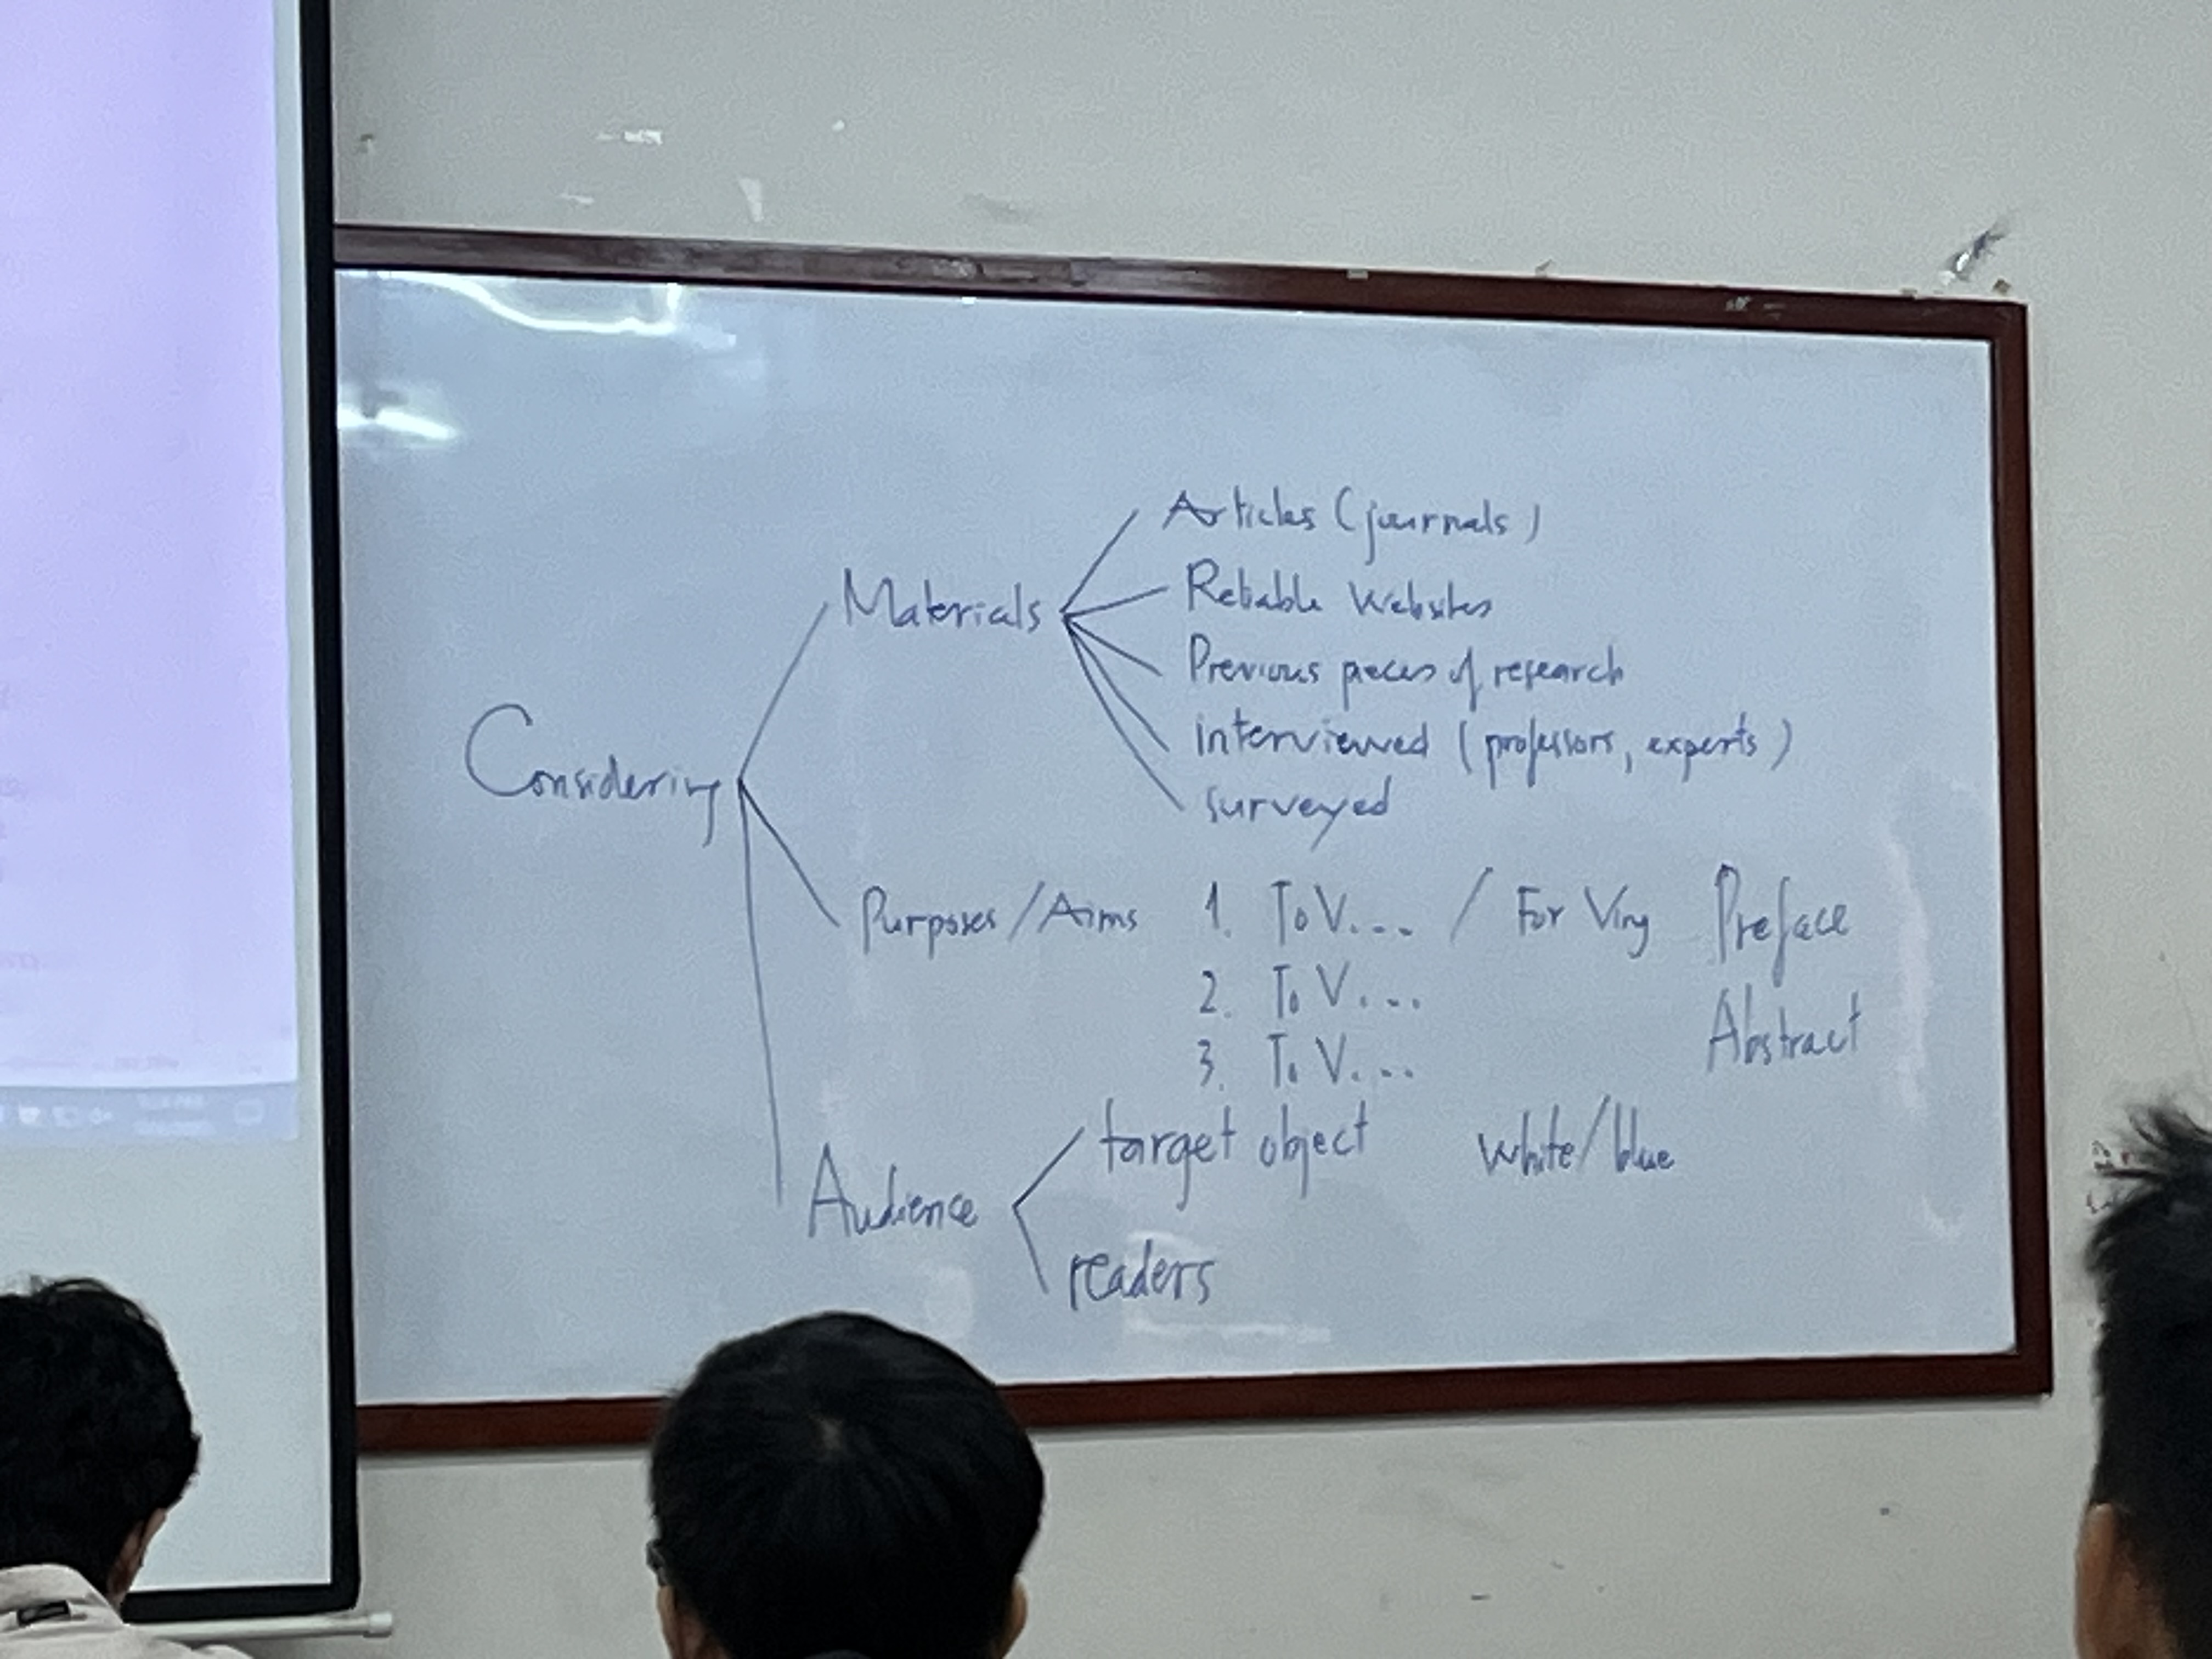 Considering
Materials
Articles (journals)
Reliable Websites
Previous pieces of research
interviewed (professors, experts)
surveyed
Purposes/Aims 1. To V... / For Ving Preface
2. To V...
3. To V...
Abstract
Audience
target object white/blue
readers